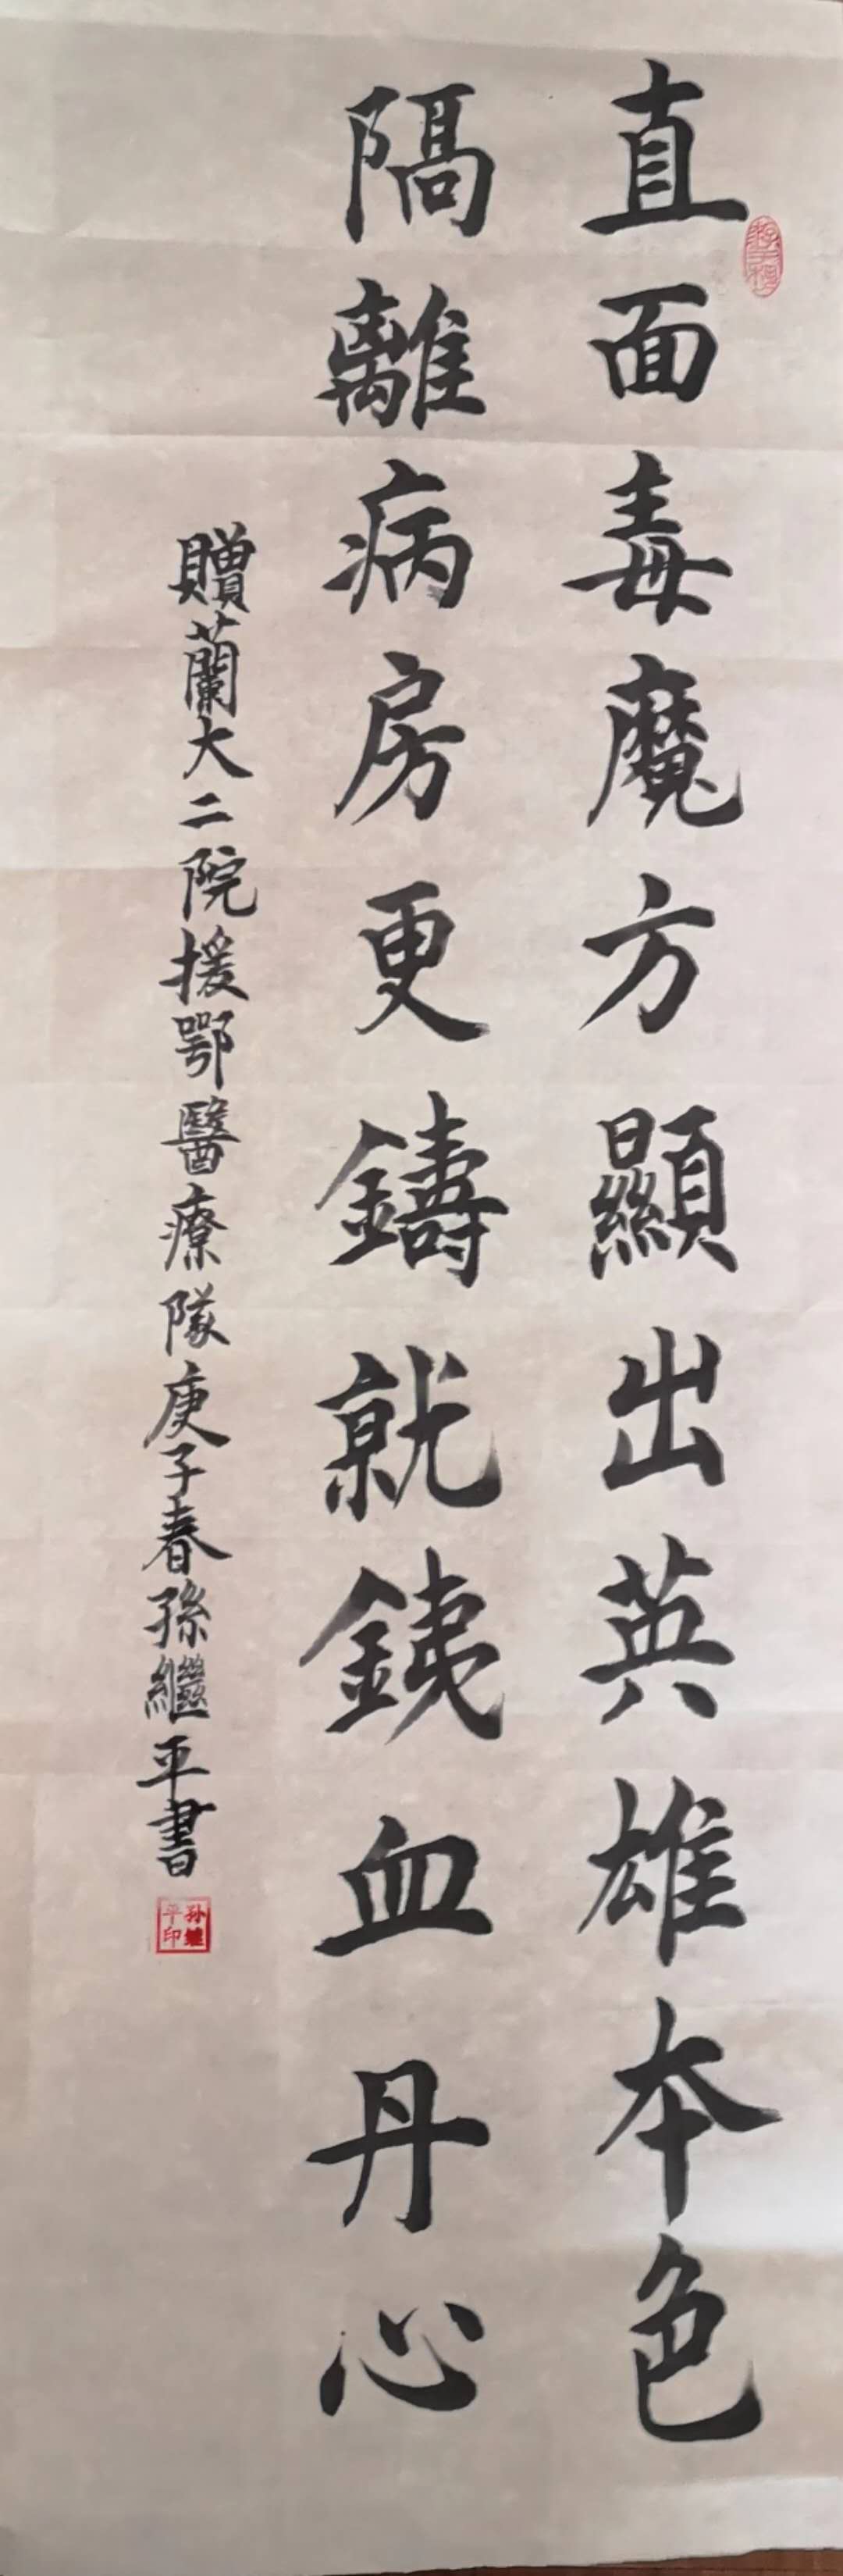 直面毒魔方顯出英雄本色
隔離病房更鑄就銕血丹心
贈蘭大二院援鄂醫療隊庚子春孫繼平書
孙继平印